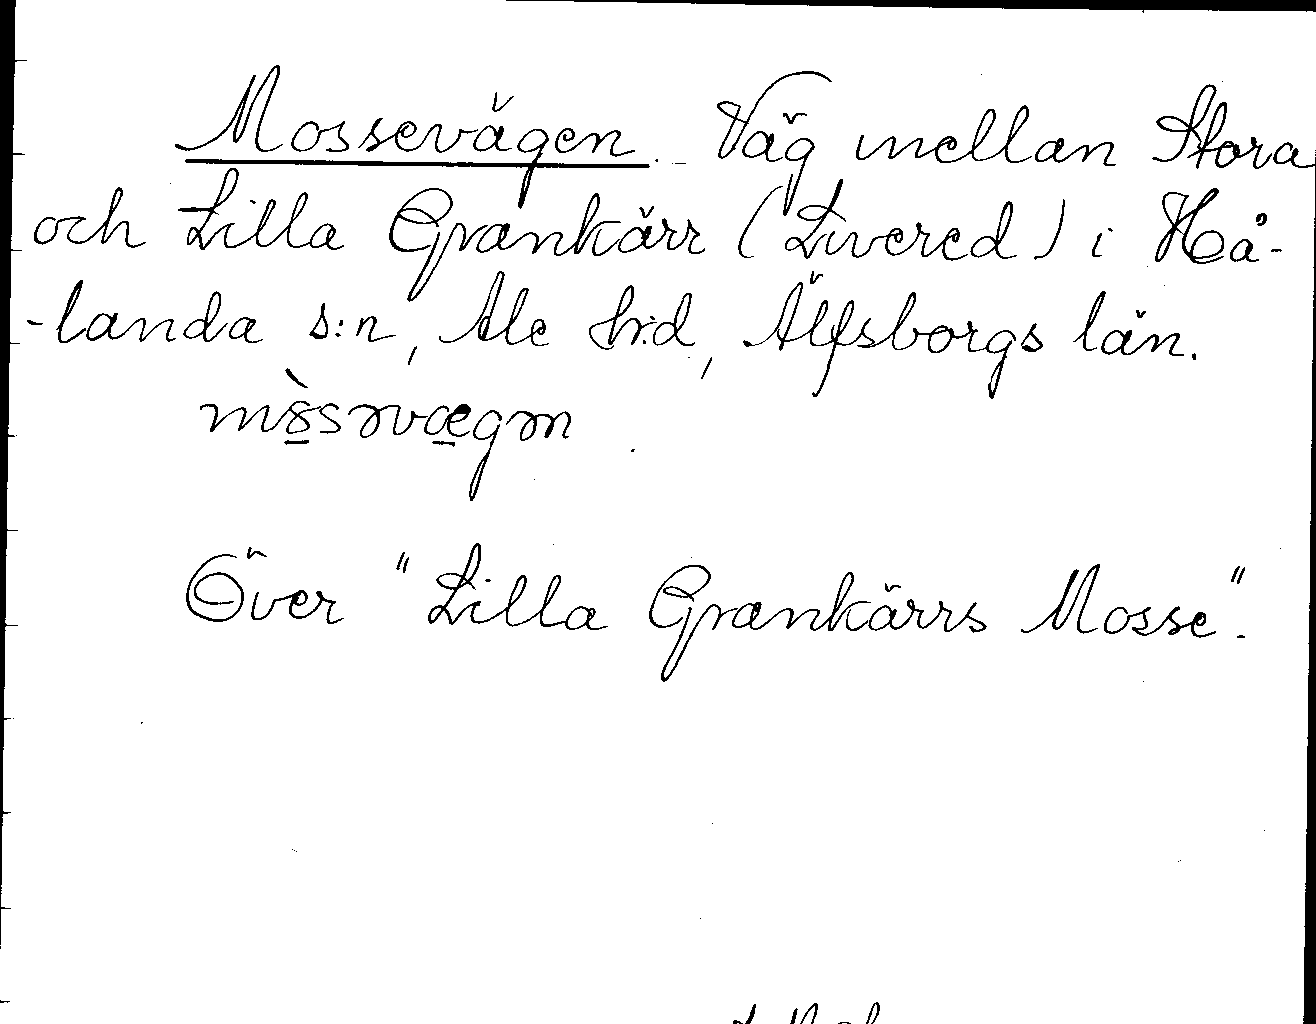 Mossevägen. Väg mellan Stora
och Lilla Grankärr (Livered) i Hå-
-landa s:n, Ale hr:d, Älfsborgs län.
Över "Lilla Grankärrs Mosse".